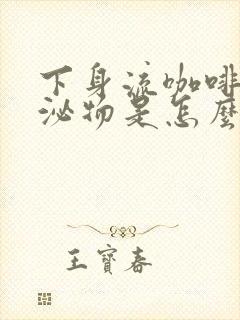 下身流咖啡
泌物是怎麼
王寶春